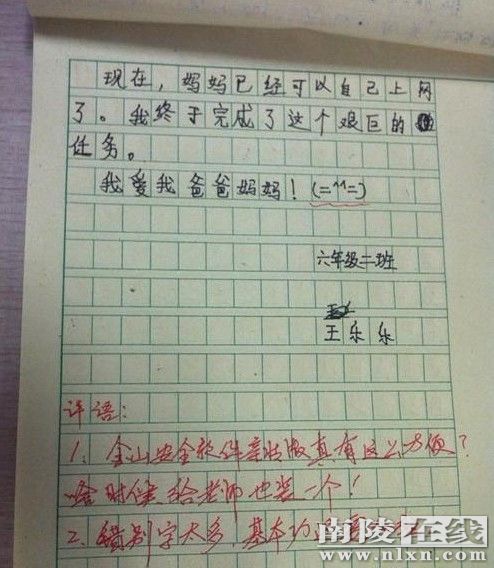 现在，妈妈已经可以自己上网
了。我终于完成了这个艰巨的
任务。
我爱我爸爸妈妈！(=^^=)
六年级二班
王乐乐
评语：
1、金山安全软件亲肤版真有这么方便？
啥时候给老师也装一个！
2、错别字太多，基本功
南陵在线
www.nlxn.com